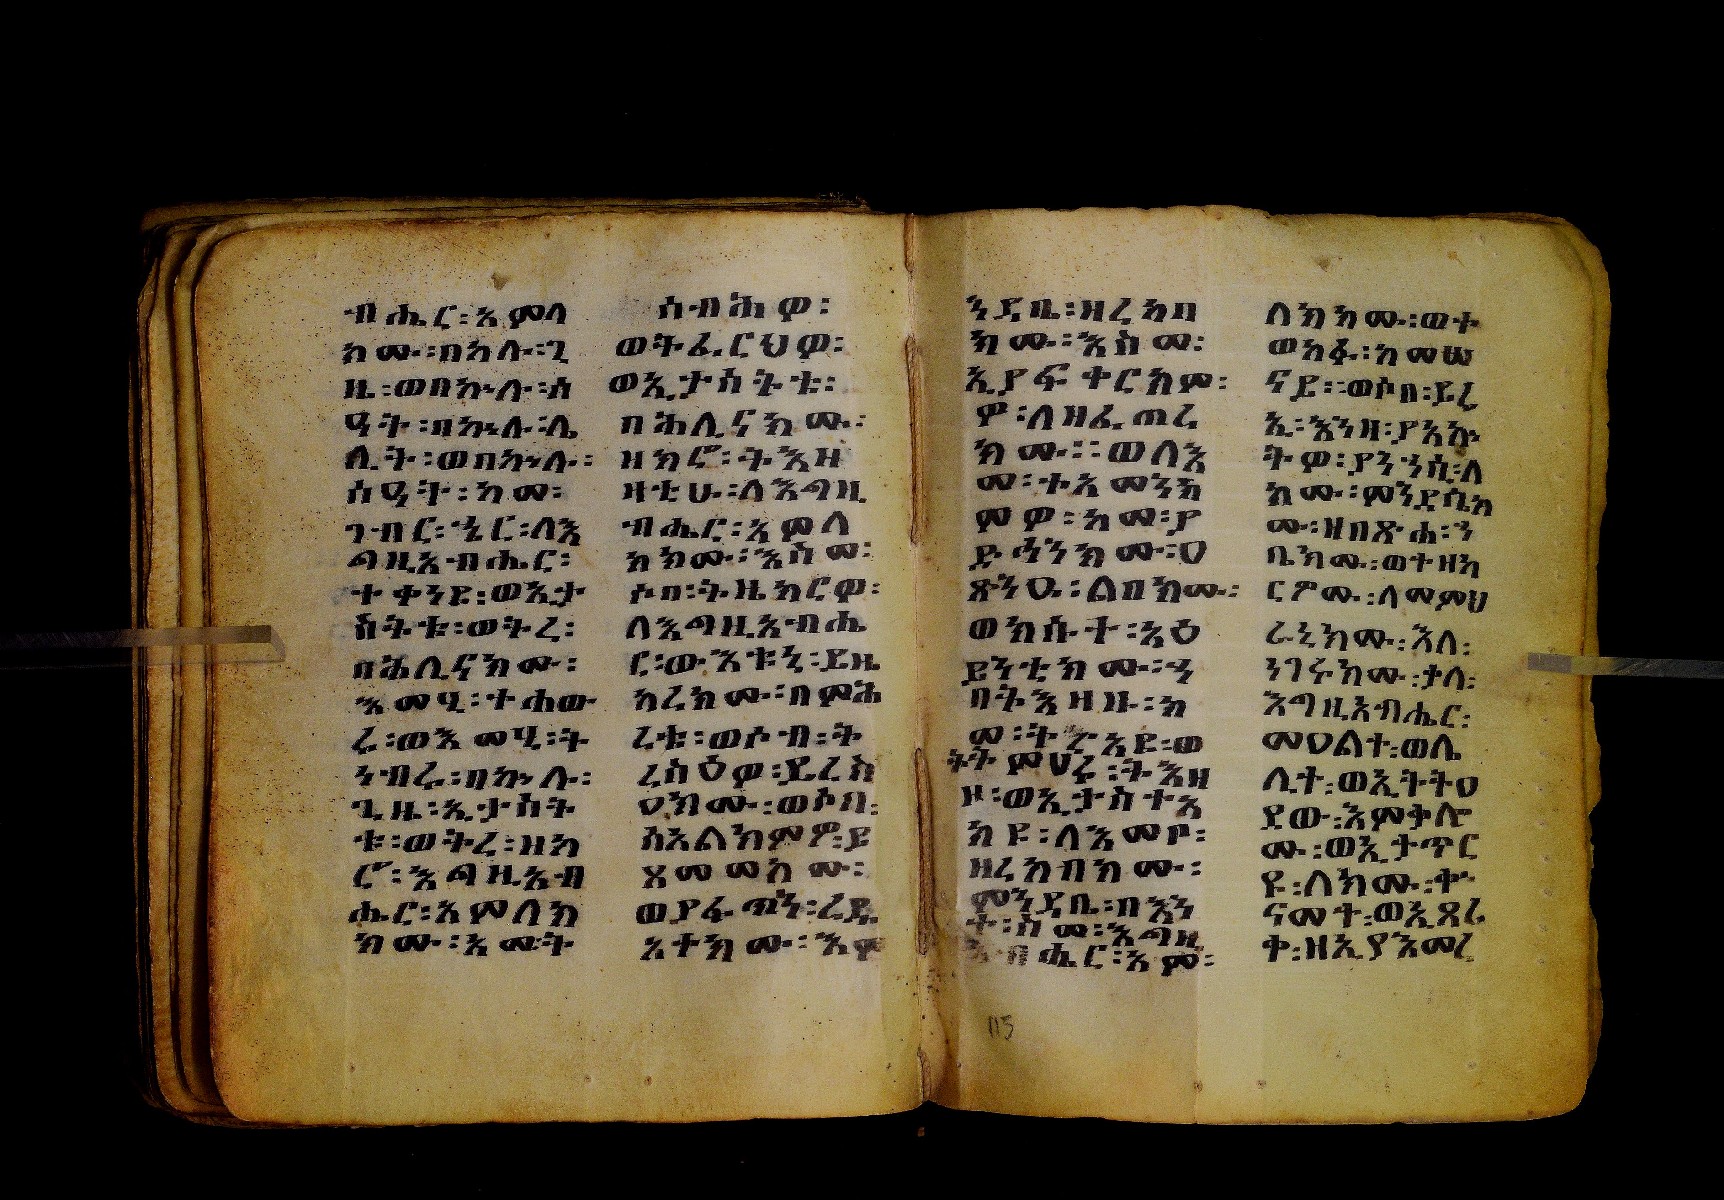 ብሔር፡አምላ
ክሙ፡በኵሉ፡ጊ
ዜ፡ወበኵሉ፡ሰ
ዓት፡በኵሉ፡ሌ
ሊት፡ወበኵሉ፡
ሰዓት፡ከመ፡
ገብር፡ኄር፡ለእ
ግዚአብሔር፡
ተቀንዩ፡ወኢታ
ስትቱ፡ወትረ፡
በሕሊናክሙ፡
እመሂ፡ተሐው
ሩ፡ወእመሂ፡ት
ነብሩ፡በኵሉ፡
ጊዜ፡ኢታስት
ቱ፡ወትረ፡ዘክ
ሮ፡እግዚአብ
ሔር፡አምላክ
ክሙ፡አሙት
ሰብሕዎ፡
ወትፌርህዎ፡
ወኢታስትቱ፡
በሕሊናክሙ፡
ዘክሮ፡ትእዘ
ዛቲሁ፡ለእግዚ
ብሔር፡አምላ
ክክሙ፡እስመ፡
ሶበ፡ትዜክርዎ፡
ለእግዚአብሔ
ር፡ውእቱኒ፡ይዜ
ከረክሙ፡በምሕ
ረቱ፡ወሶብ፡ት
ረስዕዎ፡ይረስ
ዐክሙ፡ወሶበ፡
ስእልክምዎ፡ይ
ሄመመክሙ፡
ወያፋጥን፡ረዲ
አተክሙ፡እም
ንዳቤ፡ዘረከበ
ክሙ፡እስመ፡
ኢያፍቀርክም፡
ዎ፡ለዘፈጠረ
ክሙ፡፡ወለእ
መ፡ተአመንክ
ምዎ፡ከመ፡ያ
ድኅንክሙ፡ዐ
ጽንዑ፡ልበክሙ፡
ወክሱተ፡አዕ
ይንቲክሙ፡ኀ
በትእዛዙ፡ከ
መ፡ትርአዩ፡ወ
ትትምሀሩ፡ትእዛ
ዞ፡ወኢታስተአ
ክዩ፡ለእመቦ፡
ዘረከብክሙ፡
ምንዳቤ፡በእን
ተ፡ስመ፡እግዚ
አብሔር፡አም፡
ላክክሙ፡ወተ
ወከፉ፡ከመሠ
ናይ፡፡ወሶበ፡ይሬ
ኢ፡እንዘ፡ያአኵ
ትዎ፡ያንኅሲ፡ለ
ክሙ፡ምንዳቤክ
ሙ፡ዘበጽሐ፡ኀ
ቤክሙ፡ወተዘከ
ርዎሙ፡ለመምህ
ራኒክሙ፡እለ፡
ነገሩክሙ፡ታለ፡
እግዚአብሔር፡
መዐልተ፡ወሌ
ሊተ፡ወኢትትዐ
ደው፡እምቃሎ
ሙ፡ወኢታጥር
ዩ፡ለክሙ፡ቀ
ናመተ፡ወኢጸራ
ቀ፡ዘኢያእመረ